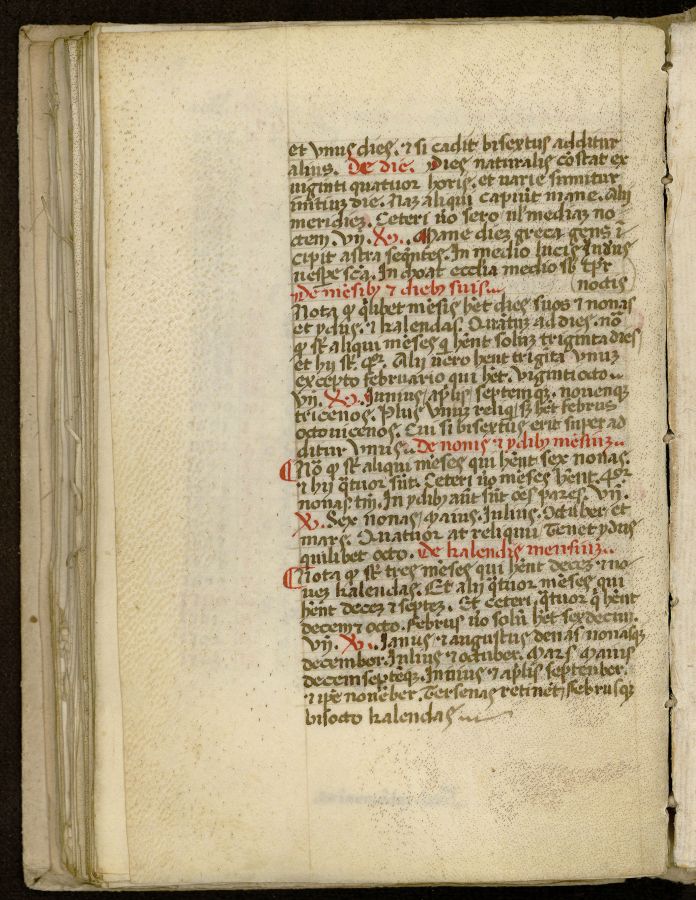 et vnus dies. ⁊ si cadit bisextus additur
alius. De die. Dies naturalis cōstat ex
uiginti quatuor horis. et uarie sumitur
initiuꝫ die. Naꝫ aliqui capiūt mane. Alii
meridieꝫ. Ceteri ūo sero ul᷑ mediaꝫ no
ctem. Vn̄. Xꝰ. Mane dieꝫ greca gens ī
cipit astra seqn̄tes. In medio lucis
uespe scā. In choat ecclīa medio sb᷑ tp̄r
noctis
De mēsibꝫ ⁊ diebꝫ suis
Nota ꝙ q̄libet mēsis hēt dies suos ⁊ nonas
et ydus. ⁊ kalendas. Quātuꝫ ad dies. nō
ꝙ st᷑ aliqui mēses q̄ hēnt soluꝫ triginta dies
et hij st᷑. q̄r. Alii uēro hēnt trigīta vnuꝫ
excepto februario qui hēt. viginti octo
Vn̄. Xꝰ. Iunius, ap̄lis, septemqꝫ. nouenqꝫ
tricenos. Plus vnuꝫ reliq, ꝫ hēt februs
octo uicenos. Cui si bisextus erit super ad
ditur vnus. De nonis ⁊ ydibꝫ mēsiuꝫ
Nō ꝙ st᷑ aliqui mēses qui hēnt sex nonas.
⁊ hij q̄tuor sūt. Ceteri ūo mēses hēnt. q̄r
nonas tm̄. In ydibꝫ aūt sūt oēs pares. Vn̄.
Xꝰ. Sex nonas, Maius. Iulius. October et
mars. Quatuor at reliqui. Tenet ydus
quilibet octo. De kalendis mensiuꝫ
Nota ꝙ st᷑ tres mēses qui hēnt deceꝫ ⁊ no
ueꝫ kalendas. Et alij q̄tuor mēses qui
hēnt deceꝫ ⁊ septeꝫ. Et ceteri q̄tuor q̄ hēnt
decem ⁊ octo. Februs ūo solū hēt sexdecim.
Vn̄. Xꝰ. Ianus ⁊ augustus denas nonasqꝫ
december. Iulius ⁊ october. Mars Maius
decem septēqꝫ. Iunius ⁊ ap̄lis september.
⁊ ip̄e nouēber. Ter senas retinēt, februsqꝫ
bis octo kalendas